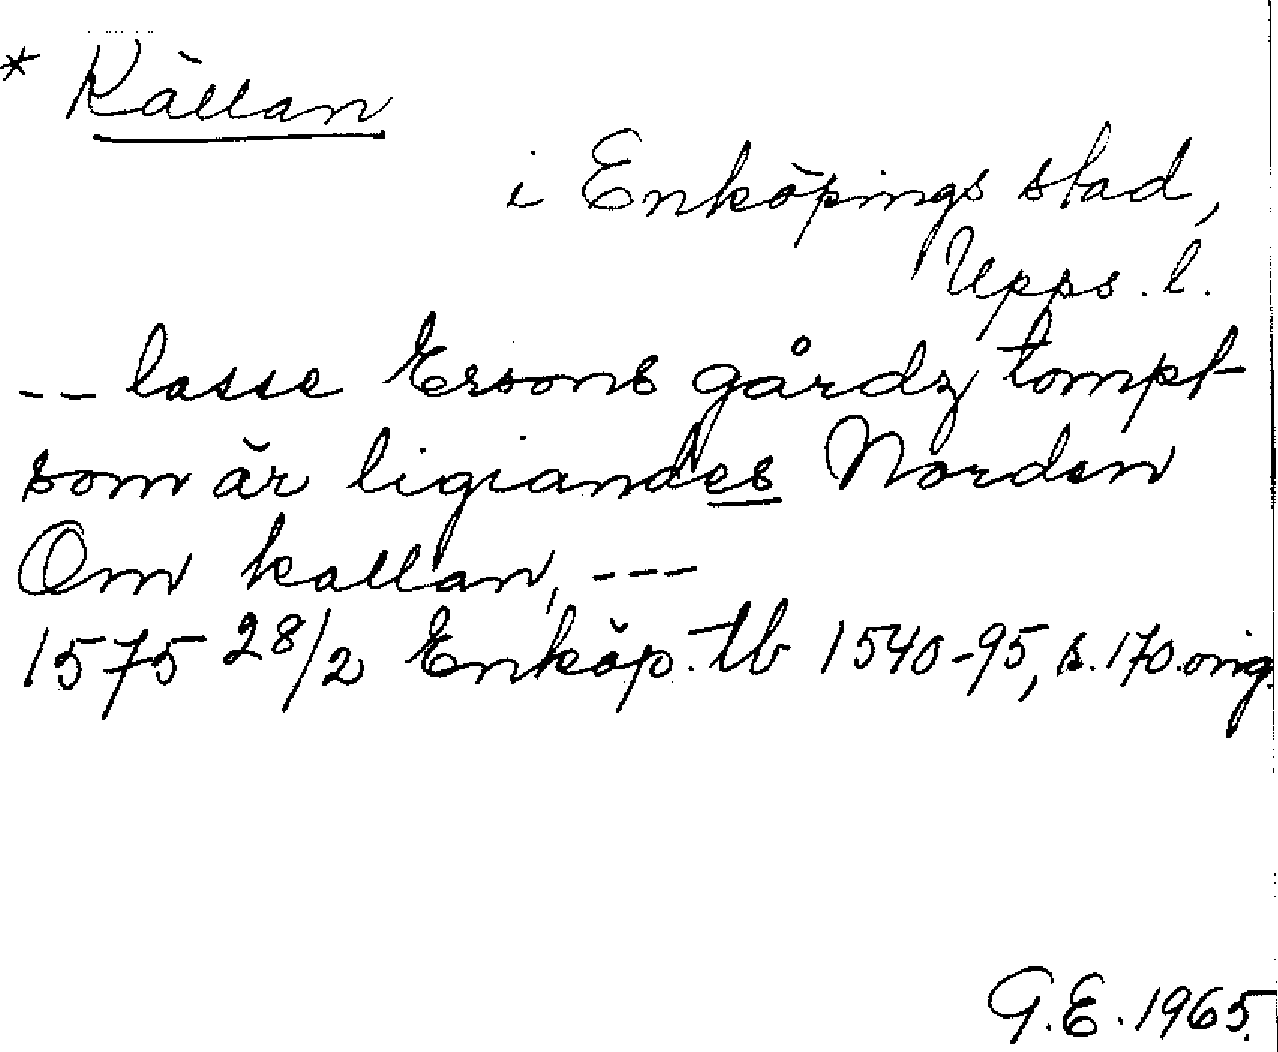 * Källan
i Enköpings stad,
Upps. l.
-- lasse Ersons gårdz tompt
som är ligiandes Norden
Om kallan, ---
1575 28/2 Enköp. tb 1540-95, s. 170. orig.
G.E. 1965.